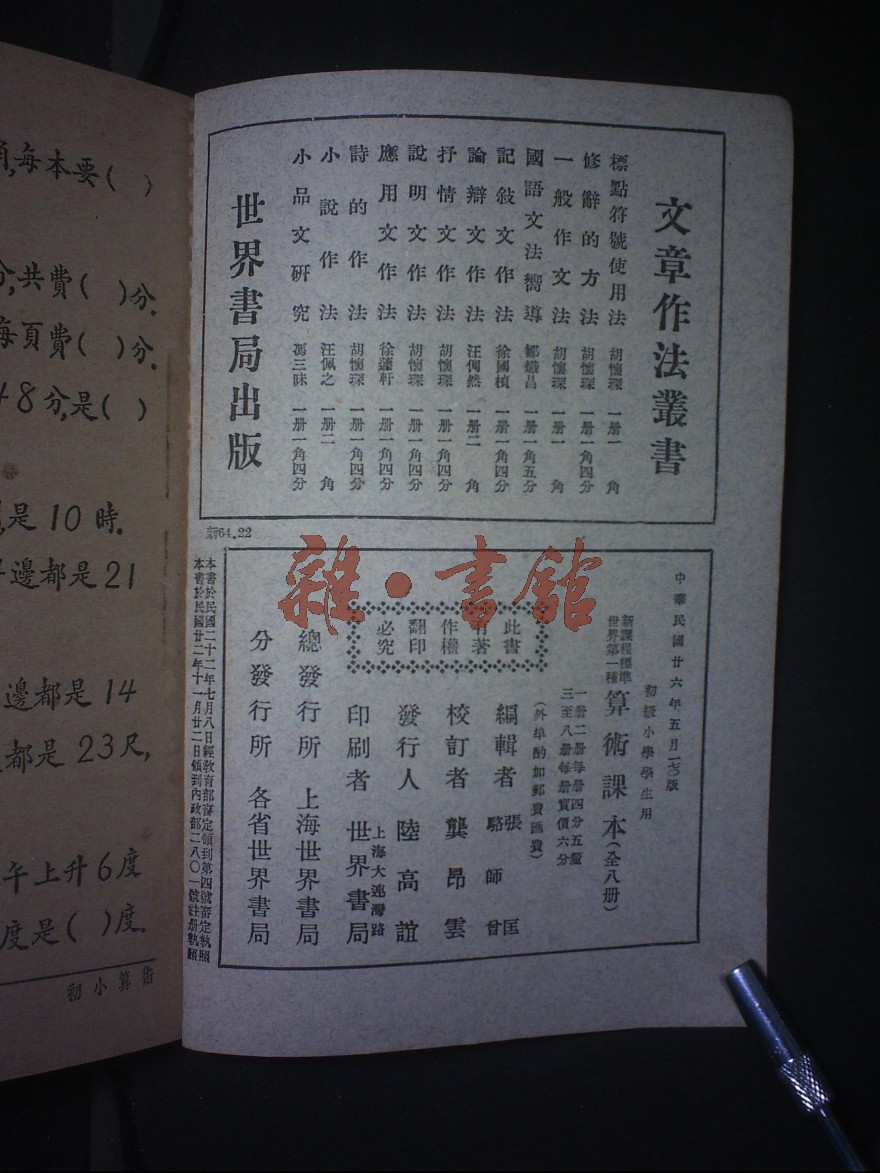 文章作法叢書
標點符號使用法 胡懷琛 一册一角
修辭的方法 胡懷琛 一册一角四分
一般作文法 胡懷琛 一册一角
國語文法嚮導 鄒熾昌 一册一角五分
記敍文作法 徐國楨 一册一角四分
論辯文作法 汪倜然 一册二角
抒情文作法 胡懷琛 一册一角四分
說明文作法 胡懷琛 一册一角四分
應用文作法 徐蘧軒 一册一角四分
詩的作法 胡懷琛 一册一角四分
小說作法 汪佩之 一册二角
小品文研究 馮三昧 一册一角四分
世界書局出版
新64.22
中華民國廿六年五月 版
初級小學學生用
新課程標準
世界第一種
算術課本(全八册)
一册二册每册四分五釐
三至八册每册實價六分
(外埠酌加郵費匯費)
編輯者 張匡
駱師曾
校訂者 龔昂雲
發行人 陸高誼
印刷者 上海大連灣路
世界書局
總發行所 上海世界書局
分發行所 各省世界書局
此書
有著
作權
翻印
必究
本書於民國二十二年七月八日經敎育部審定領到第四號審定執照
本書於民國廿二年十一月廿二日領到內政部二八〇一號註册執照
雜·書館
每本要( )
共費( )分.
每頁費( )分.
8分,是( )
是10時.
邊都是21
邊都是14
都是23尺,
午上升6度
度是( )度.
初小算術